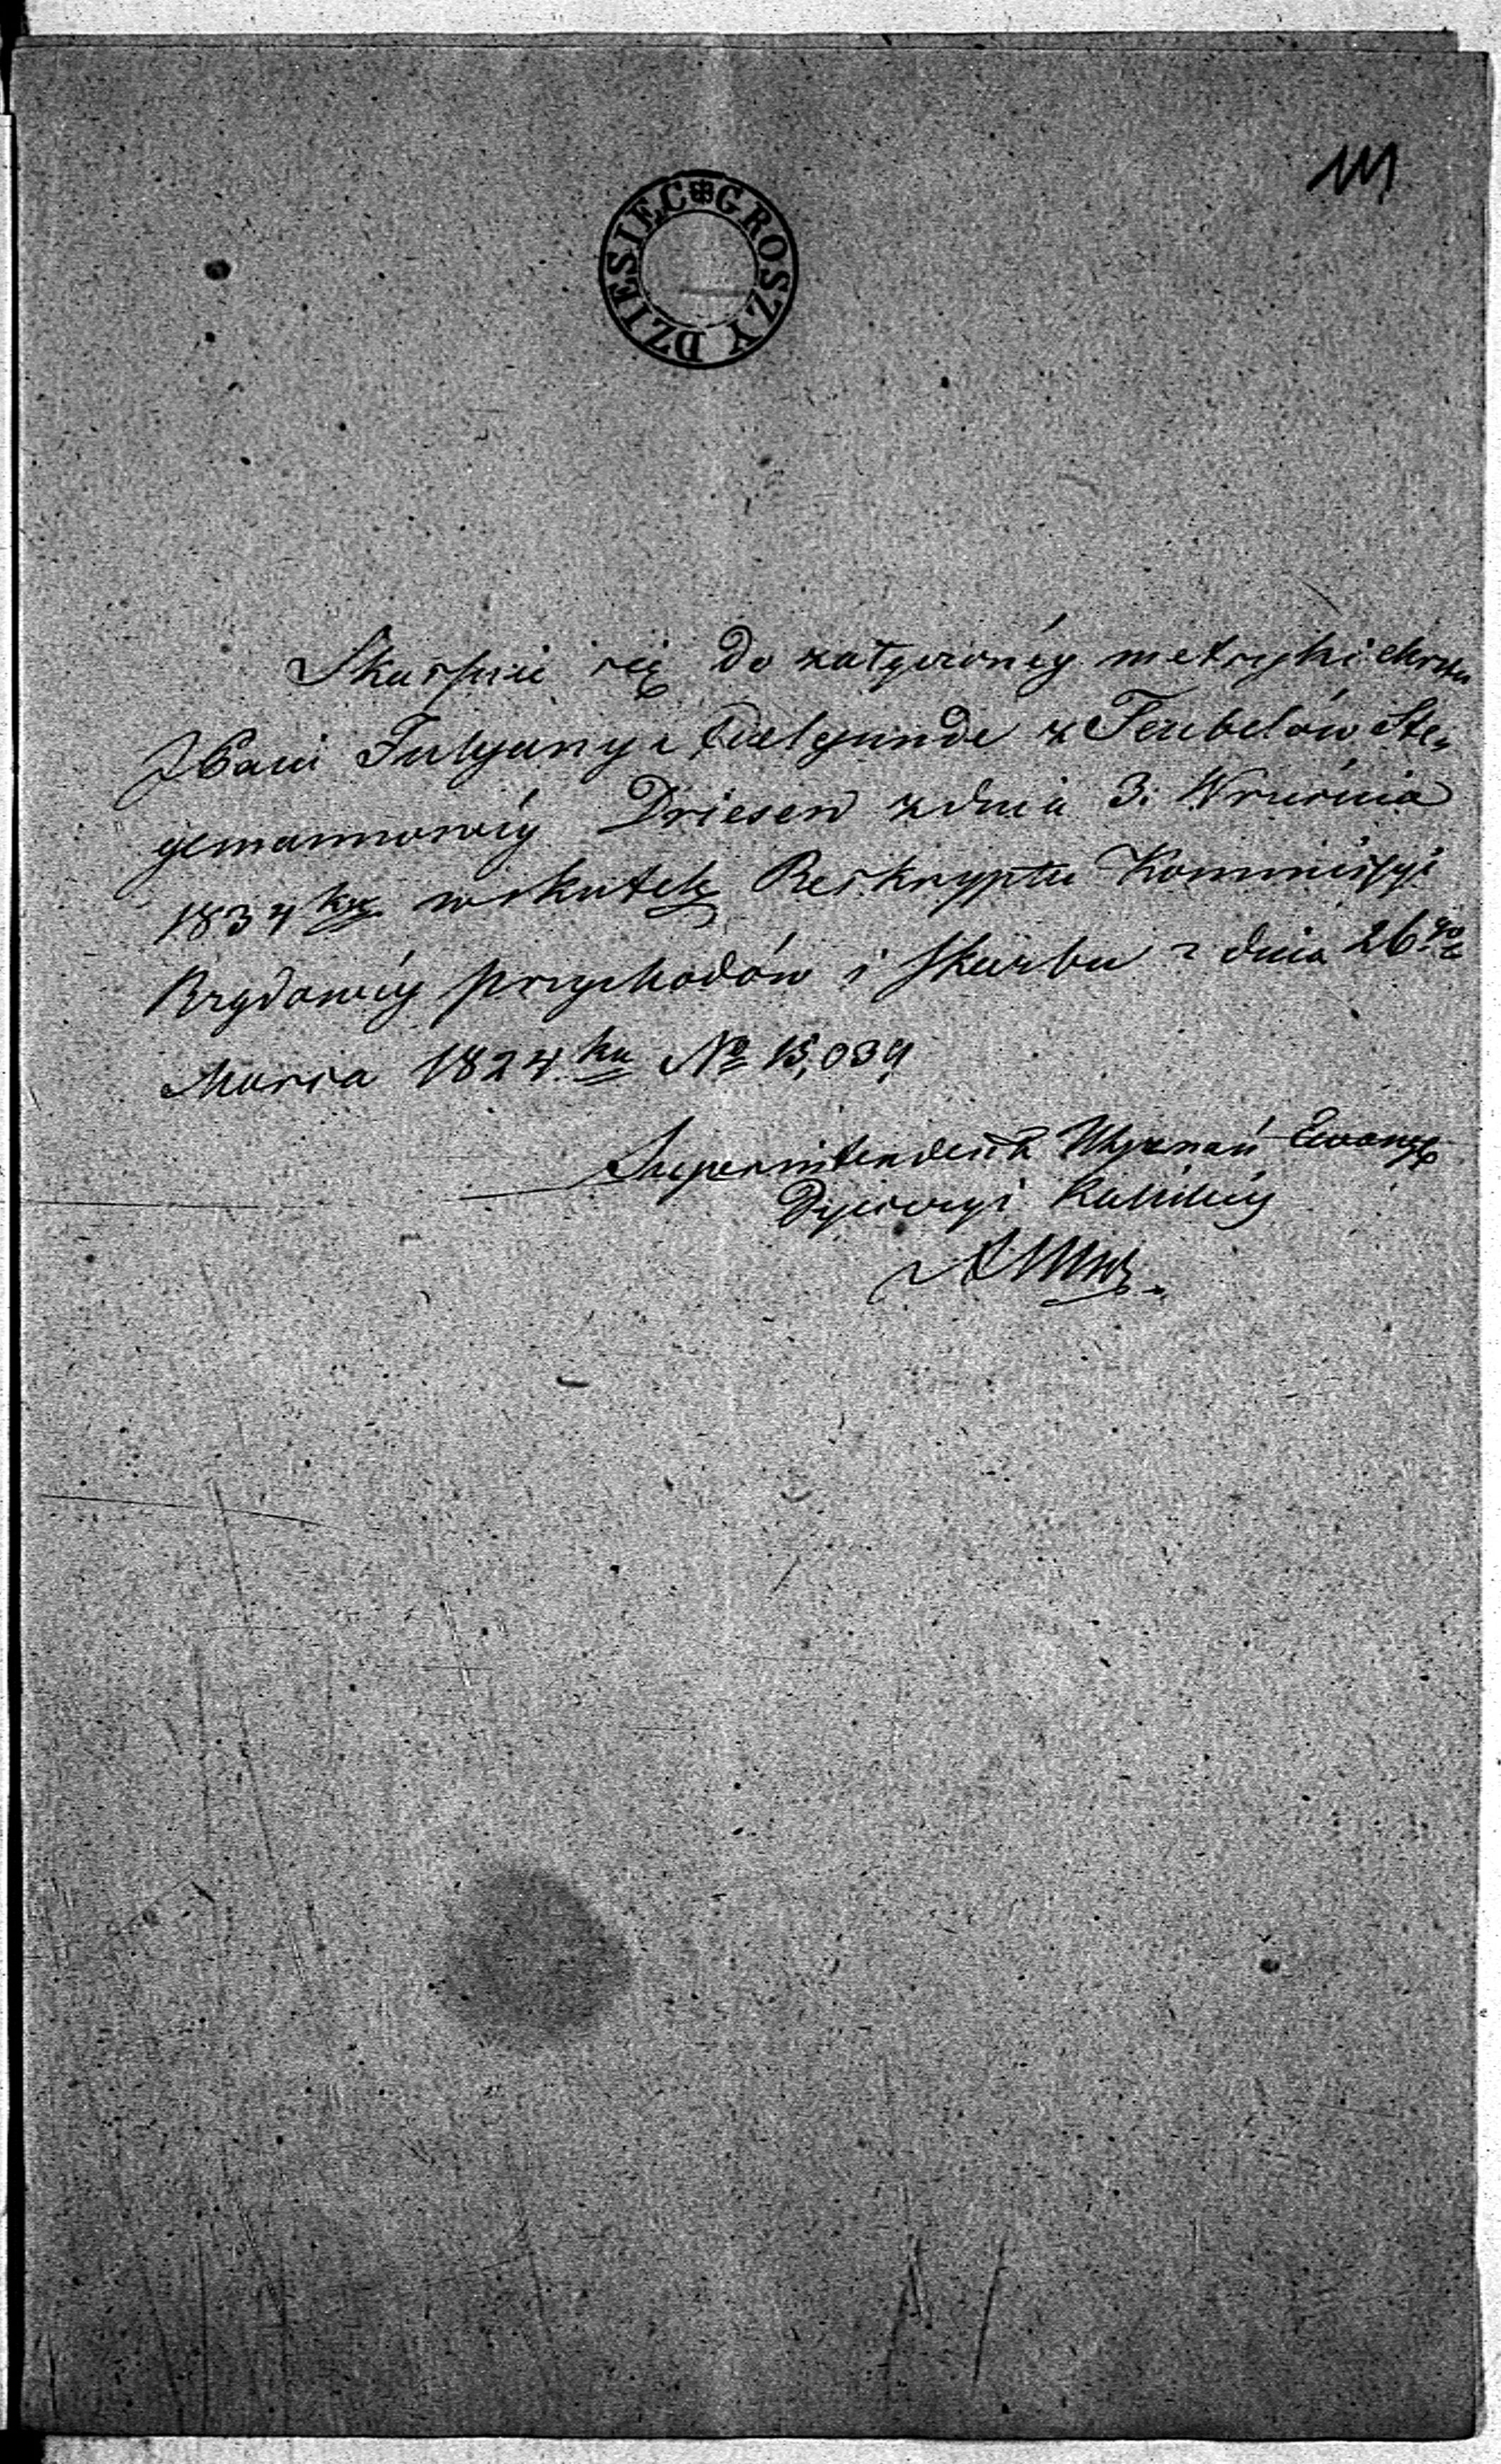 111
DZIESIĘC GROSZY
Skassuie się do załączonéy metryki chrztu
JPani Julyanny Kuelgunde z Teubelów Ste-
gemannowéy Driesen z dnia 3. Września
1834 ku wskutek Reskryptu Kommissyi
Rządowéy przychodów i skarbu z dnia 26go
Marca 1824 ku No 15,039
Superintendent Wyznań Ewang
Dyecezyi Kaliskiéy